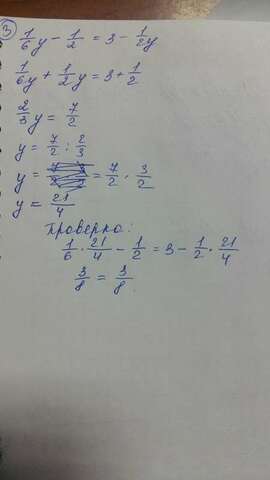 3
1/6 y - 1/2 = 3 - 1/2 y
1/6 y + 1/2 y = 3 + 1/2
2/3 y = 7/2
y = 7/2 : 2/3
y = = 7/2 · 3/2
y = 21/4
Проверка:
1/6 · 21/4 - 1/2 = 3 - 1/2 · 21/4
3/8 = 3/8